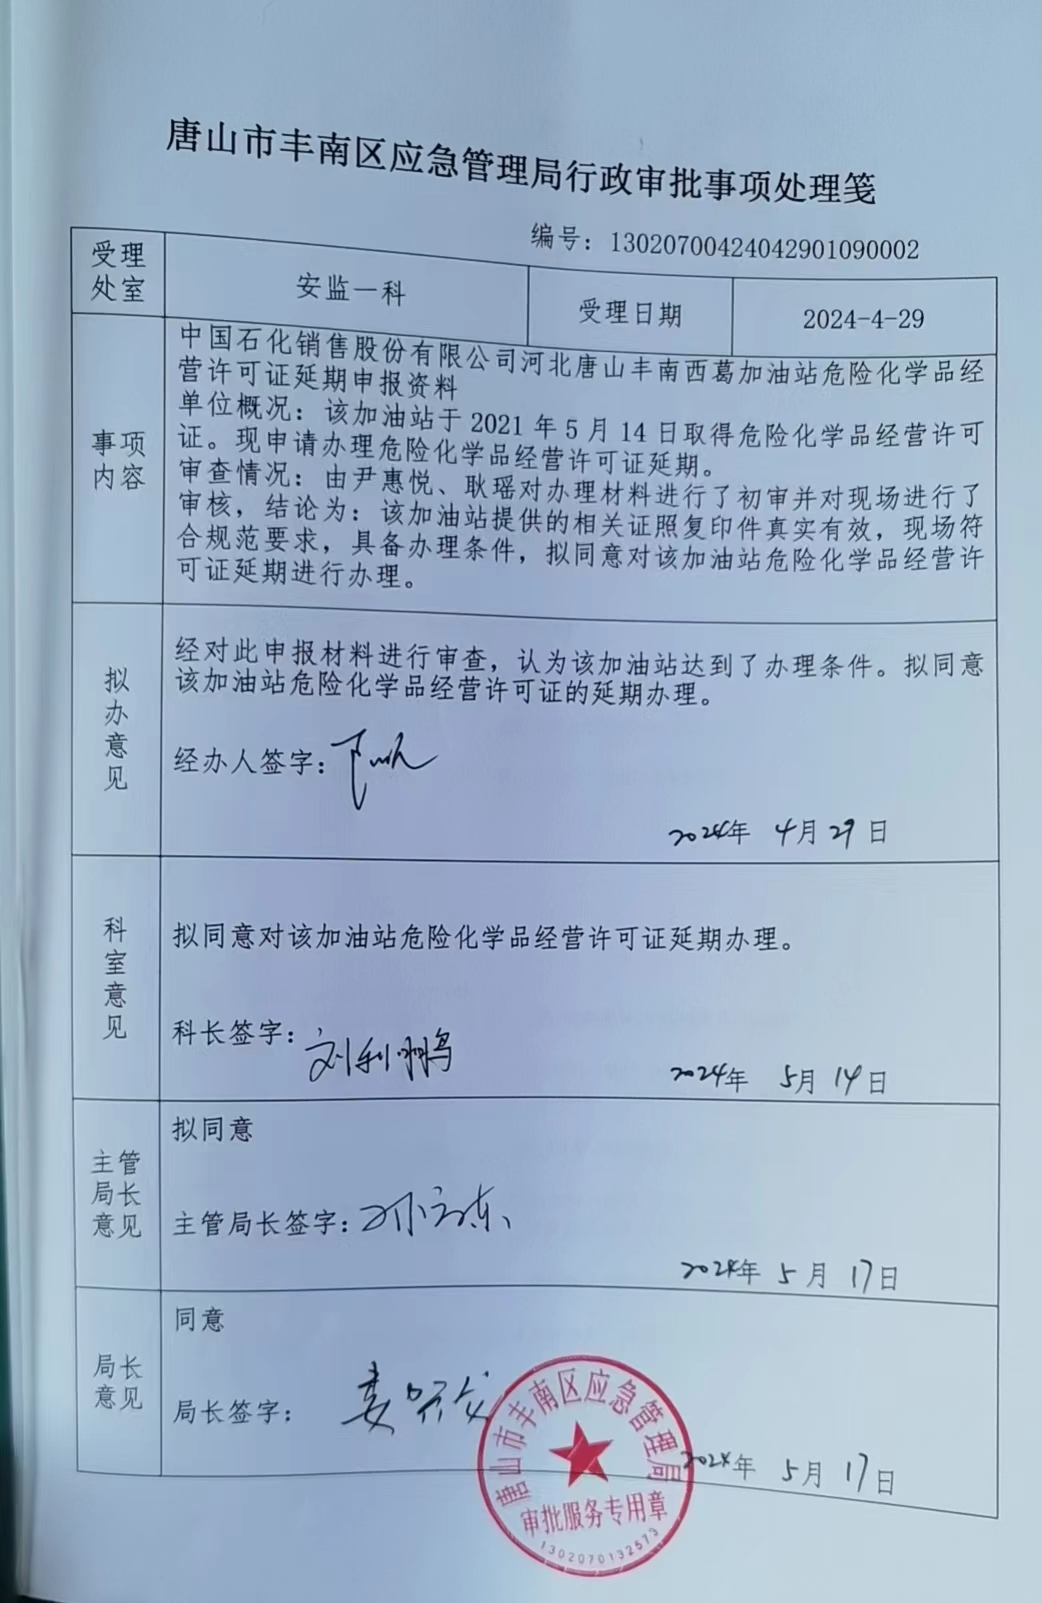 唐山市丰南区应急管理局行政审批事项处理笺
编号：13020700424042901090002
受理
处室
安监一科
受理日期
2024-4-29
事项
内容
中国石化销售股份有限公司河北唐山丰南西葛加油站危险化学品经
营许可证延期申报资料
单位概况：该加油站于2021年5月14日取得危险化学品经营许可
证。现申请办理危险化学品经营许可证延期。
审查情况：由尹惠悦、耿瑶对办理材料进行了初审并对现场进行了
审核，结论为：该加油站提供的相关证照复印件真实有效，现场符
合规范要求，具备办理条件，拟同意对该加油站危险化学品经营许
可证延期进行办理。
拟
办
意
见
经对此申报材料进行审查，认为该加油站达到了办理条件。拟同意
该加油站危险化学品经营许可证的延期办理。
经办人签字：
2024年 4月29日
科
室
意
见
拟同意对该加油站危险化学品经营许可证延期办理。
科长签字：刘利鹏
2024年 5月14日
主管
局长
意见
拟同意
主管局长签字：
2024年 5月17日
局长
意见
同意
局长签字：
2024年 5月17日
唐山市丰南区应急管理局
审批服务专用章
1302070132573